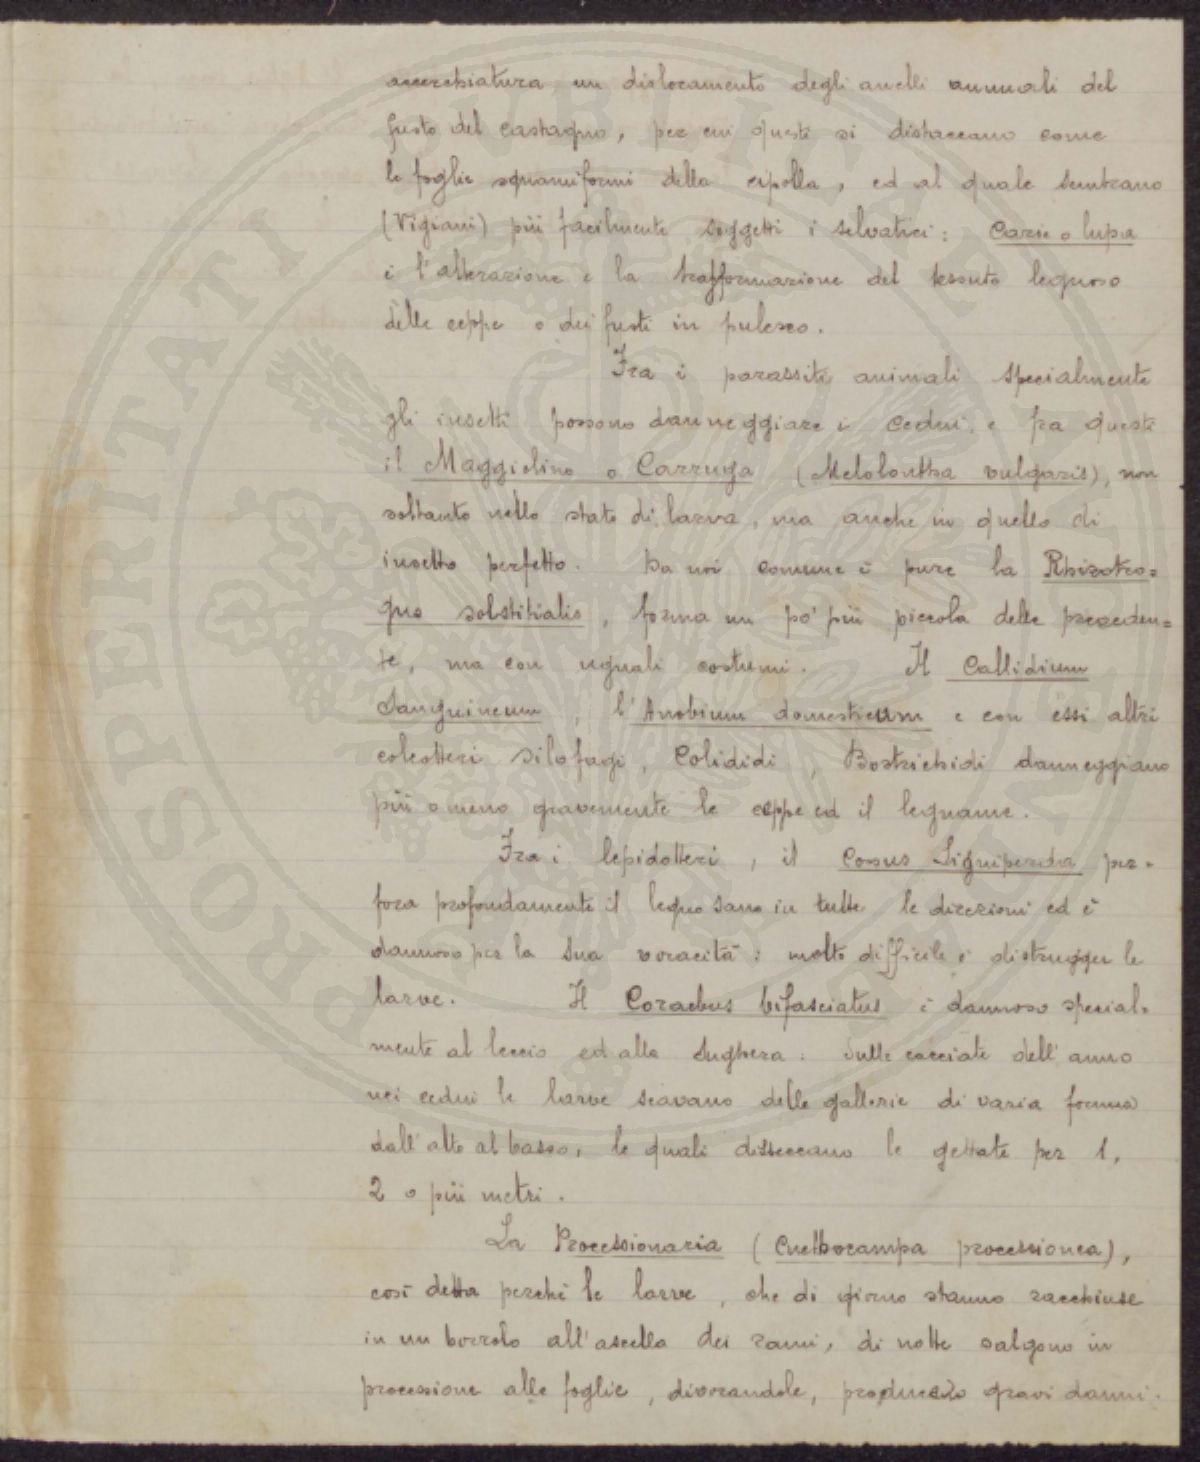 accerchiatura un dislocamento degli anelli annuali del
fusto del castagno, per cui questi si distaccano come
le foglie squamiformi della cipolla, ed al quale sembrano
(Vigiani) più facilmente soggetti i selvatici: Carie o lupa
è l'alterazione e la trasformazione del tessuto legnoso
delle ceppe o dei fusti in
Fra i parassiti animali specialmente
gli insetti possono danneggiare i cedui, e fra questi
il Maggiolino o Carruga (Melolontha vulgaris), non
soltanto nello stato di larva, ma anche in quello di
insetto perfetto. Da noi comune è pure la Rhizotro=
gus solstitialis, forma un po' più piccola della preceden=
te, ma con uguali costumi. Il Callidium
Sanguineum, l'Anobium domesticum e con essi altri
coleotteri silofagi, Colididi, Bostrichidi danneggiano
più o meno gravemente le ceppe ed il legname.
Fra i lepidotteri, il Cossus Ligniperda per=
fora profondamente il legno sano in tutte le direzioni ed è
dannoso per la sua voracità: molto difficile è distrugger le
larve. Il Coraebus bifasciatus è dannoso special=
mente al leccio ed alla Sughera: Sulle cacciate dell'anno
nei cedui le larve scavano delle gallerie di varia forma
dall'alto al basso, le quali disseccano le gettate per 1,
2 o più metri.
La Processionaria (Cnethocampa processionea),
così detta perchè le larve, che di giorno stanno racchiuse
in un bozzolo all'ascella dei rami, di notte salgono in
processione alle foglie, divorandole, producendo gravi danni.
PROSPERITATI PVBLICAE